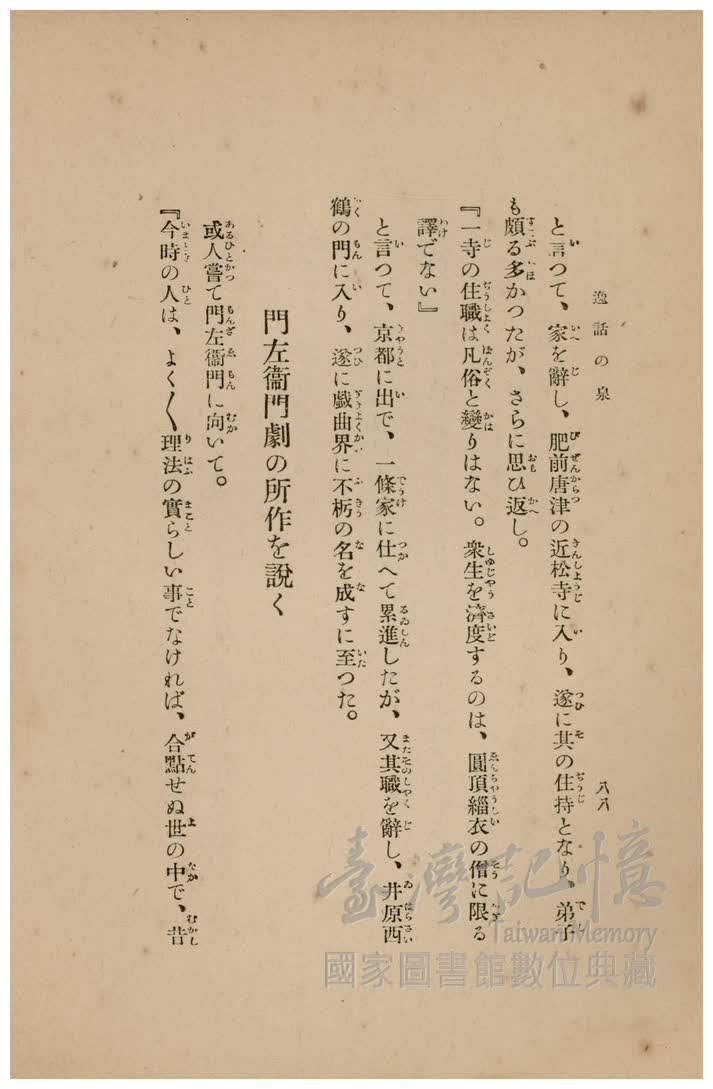 逸話の泉
八八
と言つて、家を辭し、肥前唐津の近松寺に入り、遂に其の住持となり、弟子
も頗る多かつたが、さらに思ひ返し。
『一寺の住職は凡俗と變りはない。衆生を濟度するのは、圓頂緇衣の僧に限る
譯でない』
と言つて、京都に出で、一條家に仕へて累進したが、又其職を辭し、井原西
鶴の門に入り、遂に戯曲界に不朽の名を成すに至つた。
門左衞門劇の所作を說く
或人嘗て門左衞門に向いて。
『今時の人は、よく〱理法の實らしい事でなければ、合點せぬ世の中で、昔
臺灣記憶
Taiwan Memory
國家圖書館數位典藏